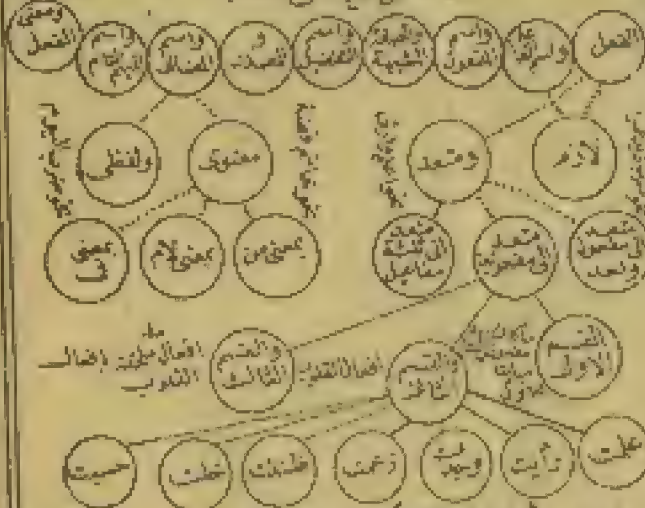 الفعل
واسم الفاعل
واسم المفعول
والصفة المشبهة
واسم التفضيل
و المصدر
واسم المضاف
واسم المبهم التام
ومعنى الفعل
لازم
ومتعد
معنوى
ولفظى
نحو خاتم فضة
نحو ضرب اليوم
متعد الى مفعول واحد
متعد الى مفعولين
متعد الى ثلثة مفاعيل
بمعنى من
بمعنى لام
بمعنى فى
القسم الاول
والقسم الثانى
افعال القلوب
والقسم الثالث
افعال ملحقة بافعال القلوب
علمت
رأيت
وجدت
زعمت
ظننت
خلت
حسبت